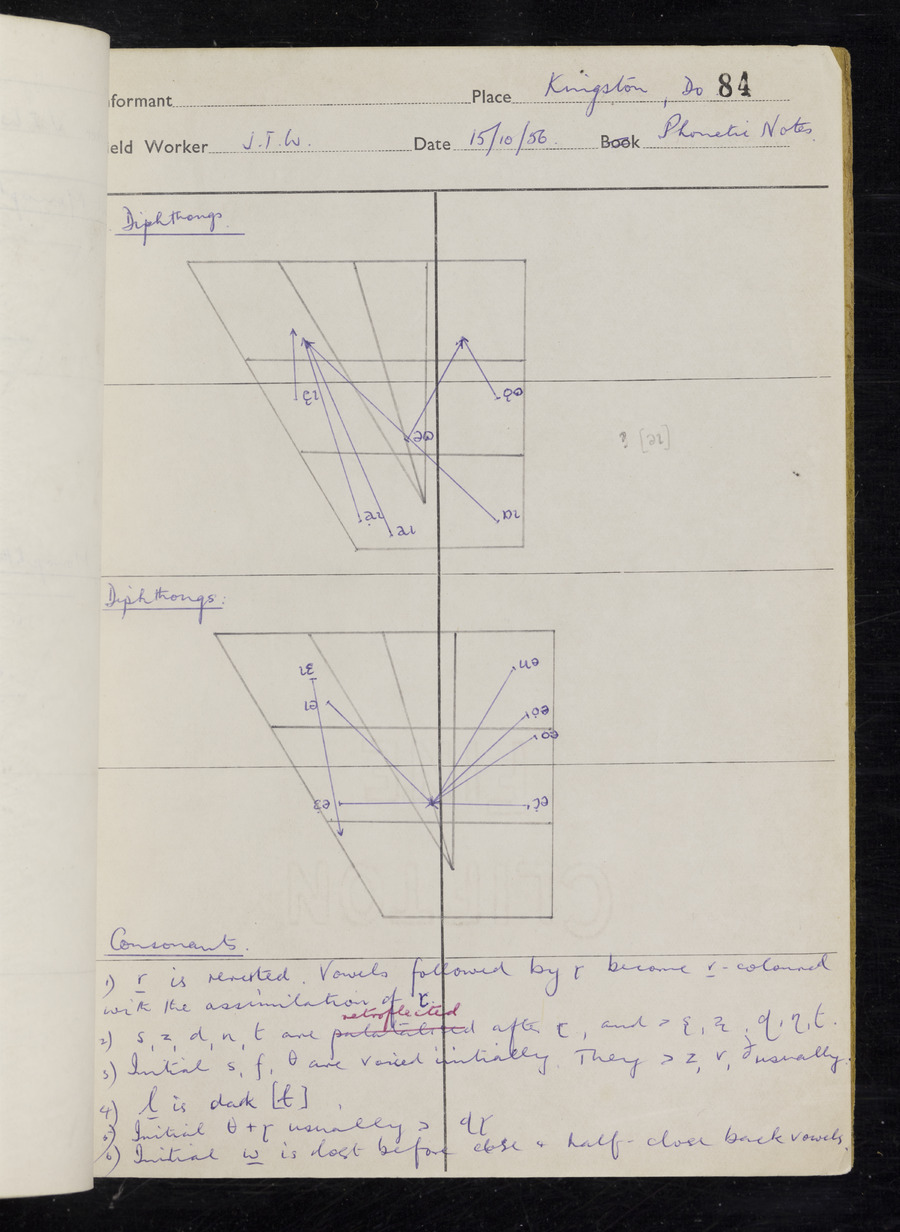 Informant Place Kingston, Do 84
Field Worker J.T.W. Date 15/10/56. Book Phonetic Notes
Diphthongs.
? [əɪ]
Diphthongs:
Consonants.
1) r is reverted. Vowels followed by ɽ become r-coloured
with the assimilation of ɽ.
retroflected
2) s, z, d, n, t are palatalised after ɽ, and > ʂ, ʐ, ɖ, ɳ, ʈ.
3) Initial s, f, θ are voiced initially. They > z, v, ð usually.
4) l is dark [ɫ]
5) Initial θ + ɽ usually > ɖɽ
6) Initial w is lost before close & half-close back vowels